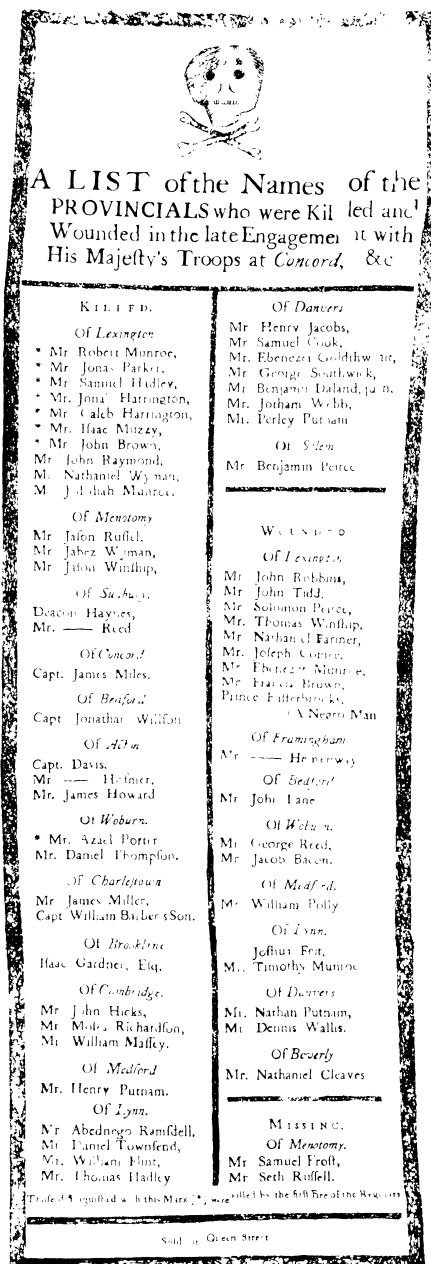 A LIST of the Names of the
PROVINCIALS who were Killed and
Wounded in the late Engagement with
His Majeſty's Troops at Concord, &c
KILLED.
Of Lexington
* Mr Robert Munroe,
* Mr Jonas Parker,
* Mr Samuel Hadley,
* Mr. Jona' Harrington,
* Mr Caleb Harrington,
* Mr. Iſaac Muzzy,
* Mr John Brown,
Mr John Raymond,
Mr Nathaniel Wyman,
M Jedediah Munroe.
Of Menotomy
Mr Jaſon Ruſſel,
Mr Jabez Wyman,
Mr Jaſon Winſhip,
Of Sudbury.
Deacon Haynes,
Mr. —— Reed
Of Concord
Capt. James Miles.
Of Bedford
Capt Jonathan Willſon
Of Acton
Capt. Davis,
Mr ——
Mr. James Howard
Of Woburn.
* Mr. Azael Porter
Mr. Daniel Thompſon.
Of Charleſtown
Mr James Miller,
Capt William Barber's Son.
Of Brookline
Iſaac Gardner, Eſq.
Of Cambridge.
Mr John Hicks,
Mr Moſes Richardſon,
Mr William Maſſey.
Of Medford
Mr. Henry Putnam.
Of Lynn.
Mr Abednego Ramſdell,
Mr Daniel Townſend,
Mr. William Flint,
Mr. Thomas Hadley
Of Danvers
Mr Henry Jacobs,
Mr Samuel Cook,
Mr. Ebenezer Goldthwait,
Mr George Southwick,
Mr Benjamin Daland, jun,
Mr. Jotham Webb,
Mr. Perley Putnam
Of Salem
Mr Benjamin Peirce
WOUNDED
Of Lexington
Mr John Robbins,
Mr John Tidd,
Mr Solomon Peirce,
Mr. Thomas Winſhip,
Mr Nathaniel Farmer,
Mr. Joſeph Comee,
Mr Ebenezer Munroe,
Mr Francis Brown,
Prince Eaſterbrooks,
(A Negro Man
Of Framingham
Mr —— Hemenway
Of Bedford
Mr John Lane
Of Woburn.
Mr George Reed,
Mr Jacob Bacon.
Of Medford.
Mr William Polly
Of Lynn.
Joſhua Felt,
Mr. Timothy Munroe
Of Danvers
Mr. Nathan Putnam,
Mr Dennis Wallis.
Of Beverly
Mr. Nathaniel Cleaves
MISSING.
Of Menotomy.
Mr Samuel Froſt,
Mr Seth Ruſſell.
Thoſe diſtinguiſhed with this Mark [*] were killed by the firſt Fire of the Regulars
Sold in Queen Street